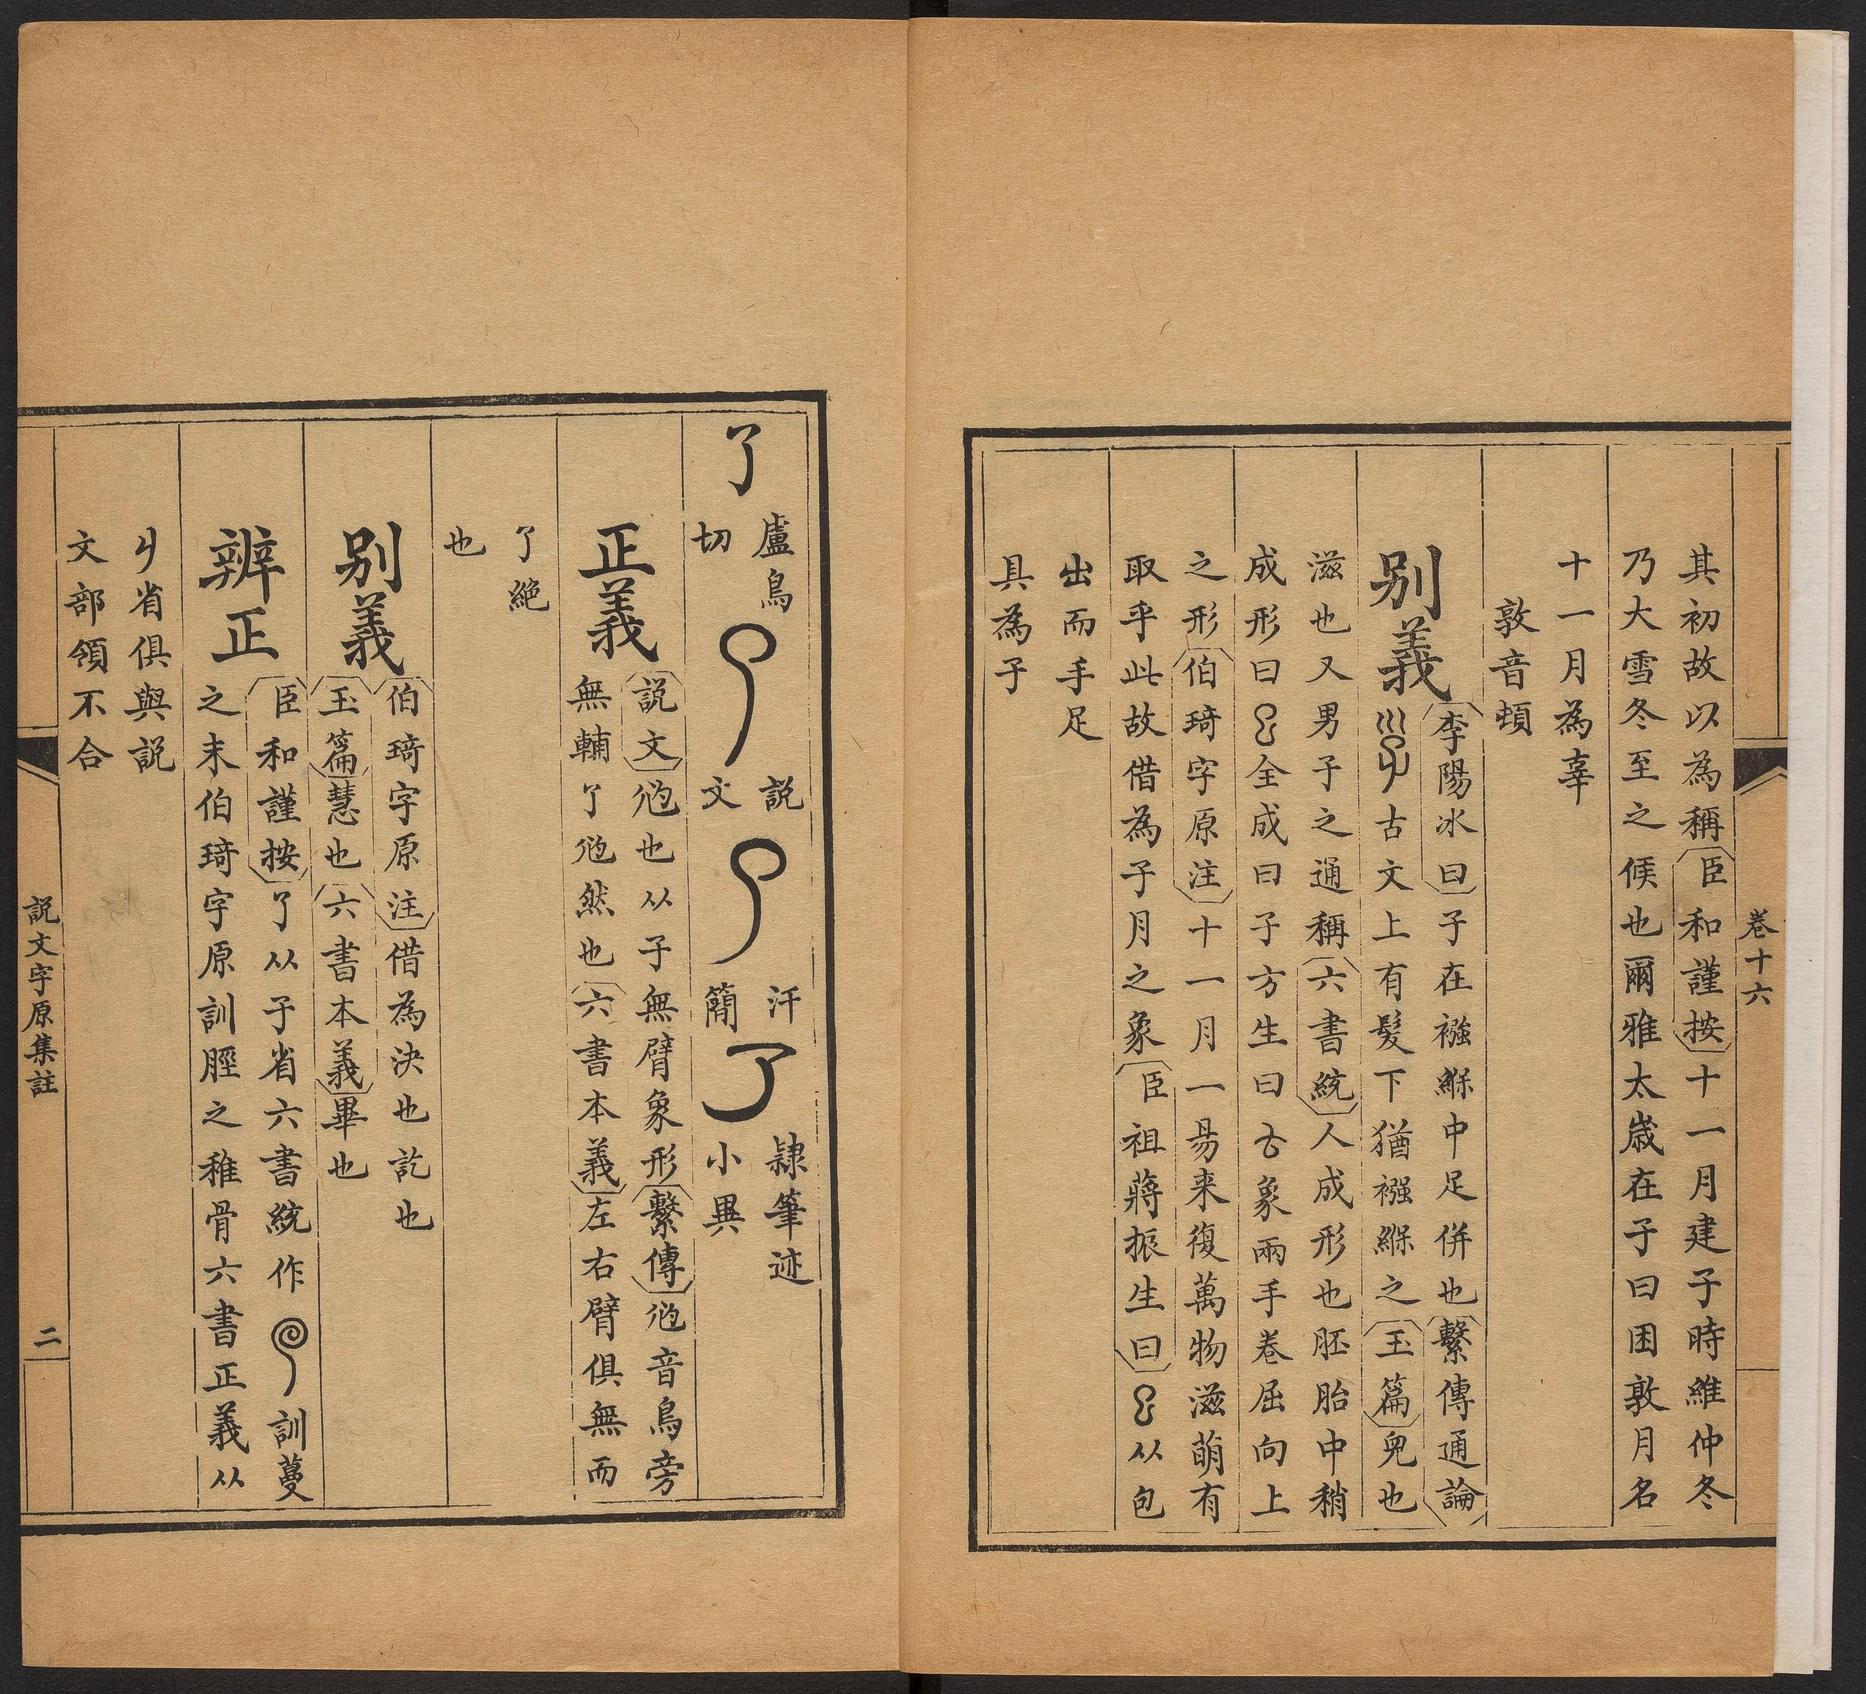 卷十六
其初故以為稱臣和謹按十一月建子時維仲冬
乃大雪冬至之候也爾雅太歲在子曰困敦月名
十一月為辜
敦音頓
別義
李陽冰曰子在襁緥中足併也繫傳通論
古文上有髮下猶襁緥之玉篇兒也
滋也又男子之通稱六書統人成形也胚胎中稍
成形曰全成曰子方生曰象兩手卷屈向上
之形伯琦字原注十一月一昜来復萬物滋萌有
取乎此故借為子月之象臣祖蔣振生曰从包
出而手足
具為子
了
盧鳥
切
說
文
汗
簡
隸筆迹
小異
正義
說文尥也从子無臂象形繫傳尥音鳥旁
無輔了尥然也六書本義左右臂俱無而
了絕
也
別義
伯琦字原注借為決也訖也
玉篇慧也六書本義畢也
辨正
臣和謹按了从子省六書統作訓蔓
之末伯琦字原訓脛之稚骨六書正義从
省俱與說
文部領不合
說文字原集註
二